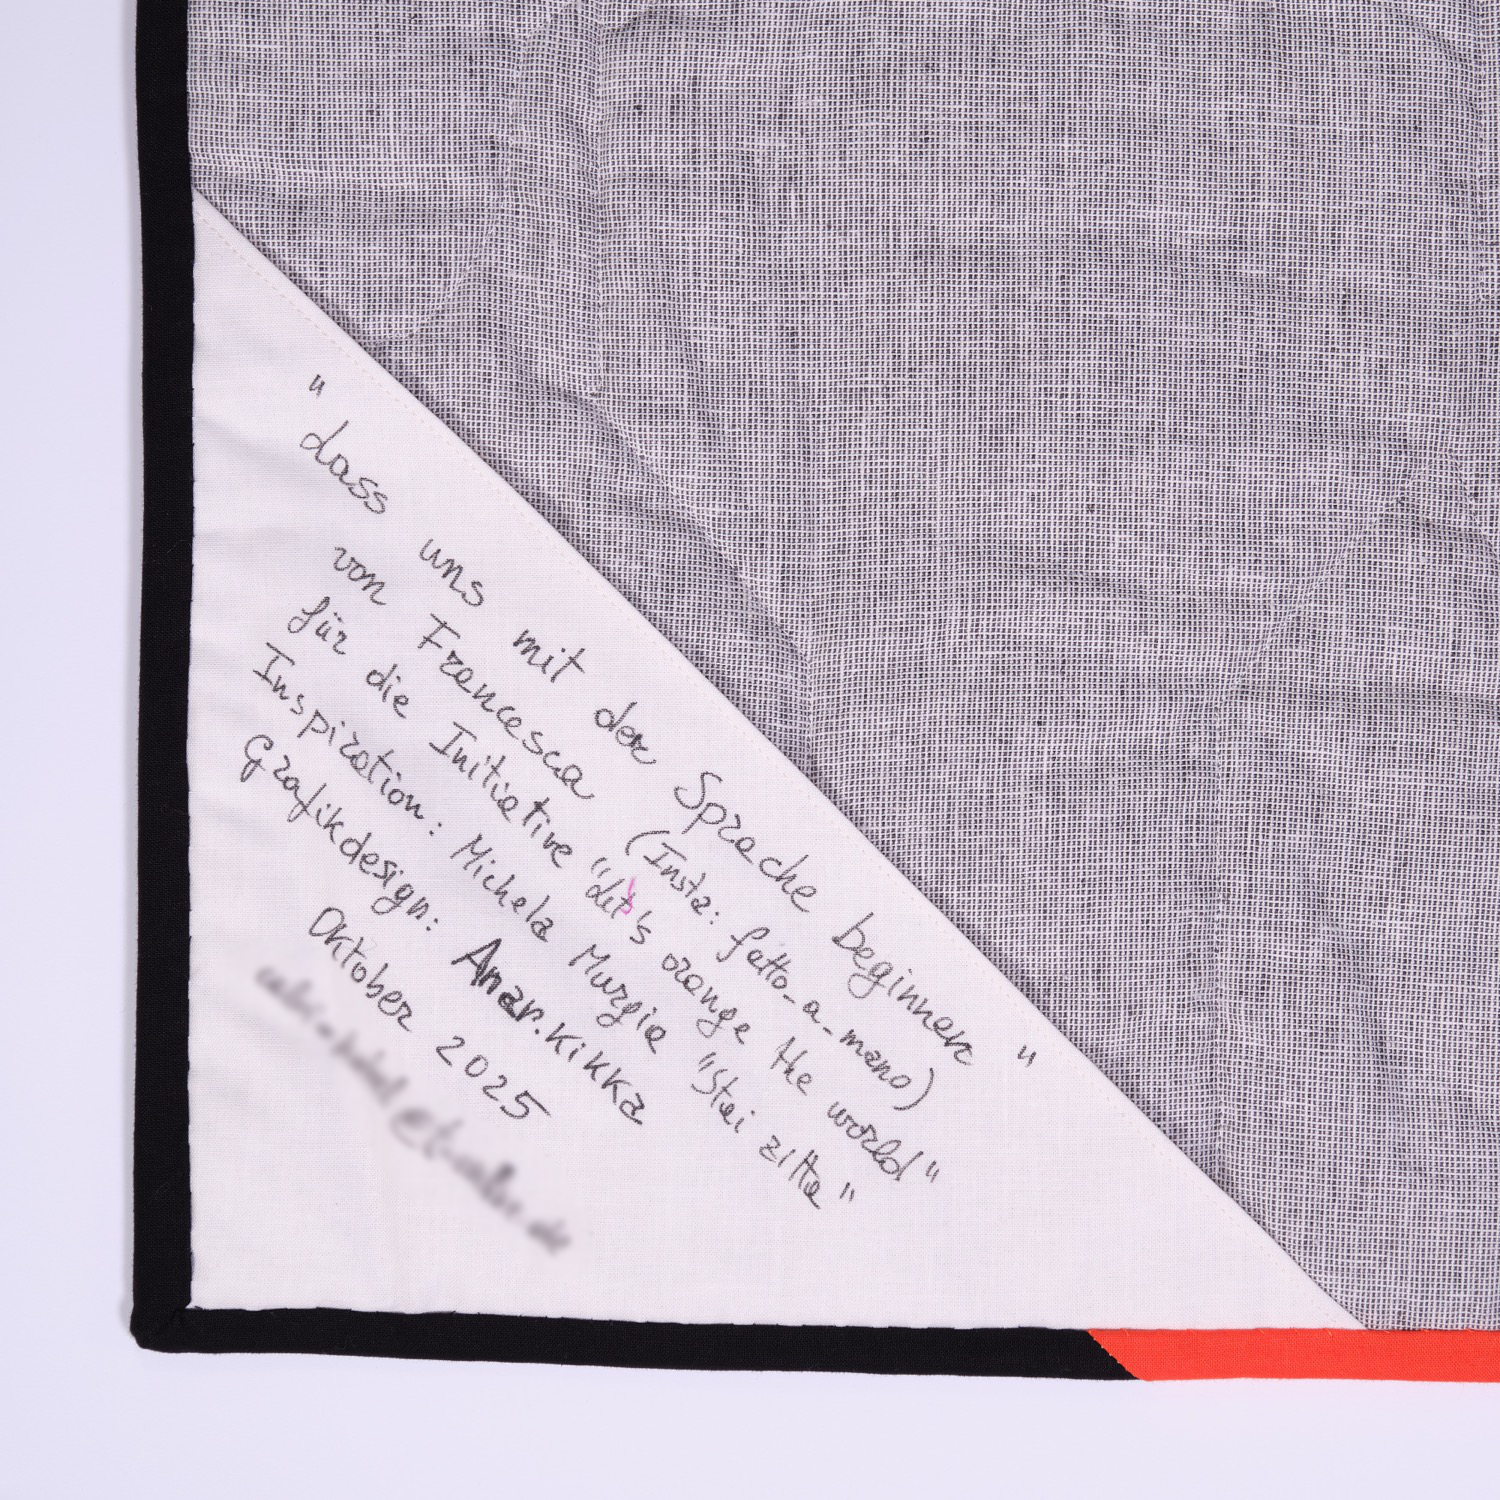 "
dass uns mit der Sprache beginnen "
von Francesca (Insta: fatto_a_mano)
für die Initiative "Let's orange the world"
Inspiration: Michela Murgia "Stai zitta"
Grafikdesign: Anar.Kikka
Oktober 2025